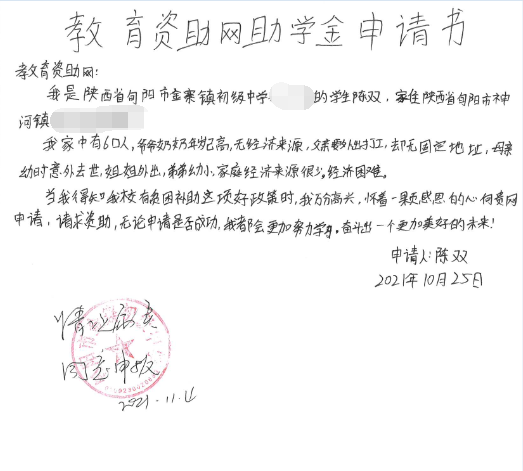 教育资助网助学金申请书
教育资助网:
我是陕西省旬阳市金寨镇初级中学 的学生陈双,家住陕西省旬阳市神
河镇
我家中有6口人,爷爷奶奶年纪高,无经济来源,父亲外出打工,却无固定地址,母亲
幼时意外去世,姐姐外出,弟弟幼小,家庭经济来源很少,经济困难。
当我得知我校有贫困补助这项好政策时,我万分高兴,怀着一颗感恩的心向贵网
申请,请求资助,无论申请是否成功,我都会更加努力学习。奋斗出一个更加美好的未来!
申请人:陈双
2021年10月25日
情况属实
同意申报
2021.11.4